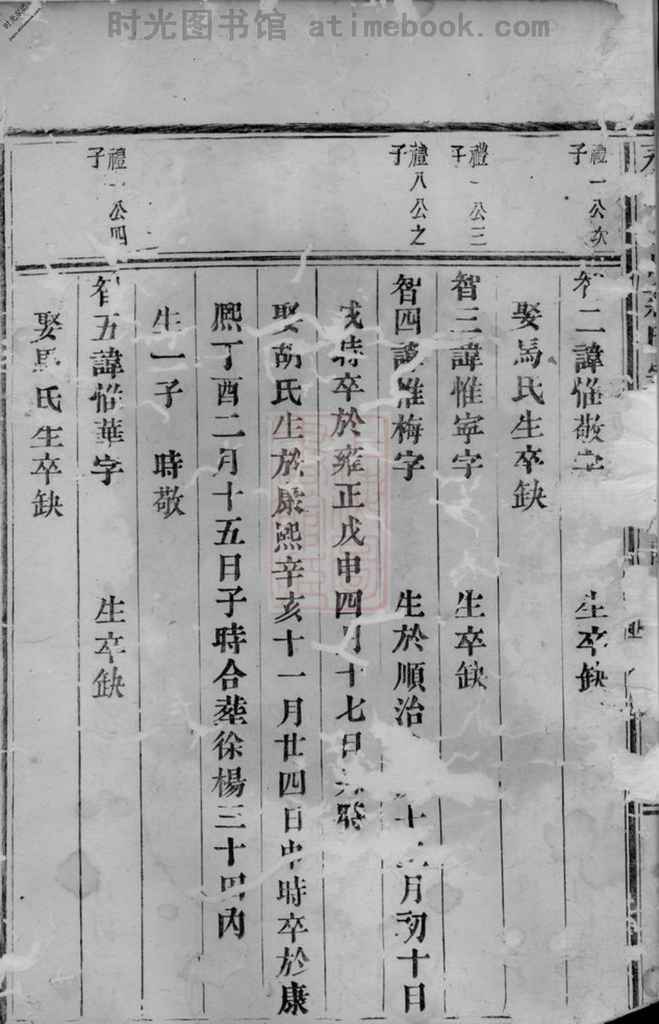 时光图书馆 atimebook.com
禮一公次
子
智二諱惟敬字 生卒缺
娶馬氏生卒缺
禮 公三
子
智三諱惟寧字 生卒缺
禮八公之
子
智四諱惟梅字 生於順治 十 月初十日
戌時卒於雍正戊申四月十七日 時
娶胡氏生於康熙辛亥十一月廿四日申時卒於康
熙丁酉二月十五日子時合塟徐楊三十四内
生一子 時敬
禮 公四
子
智五諱惟華字 生卒缺
娶馬氏生卒缺